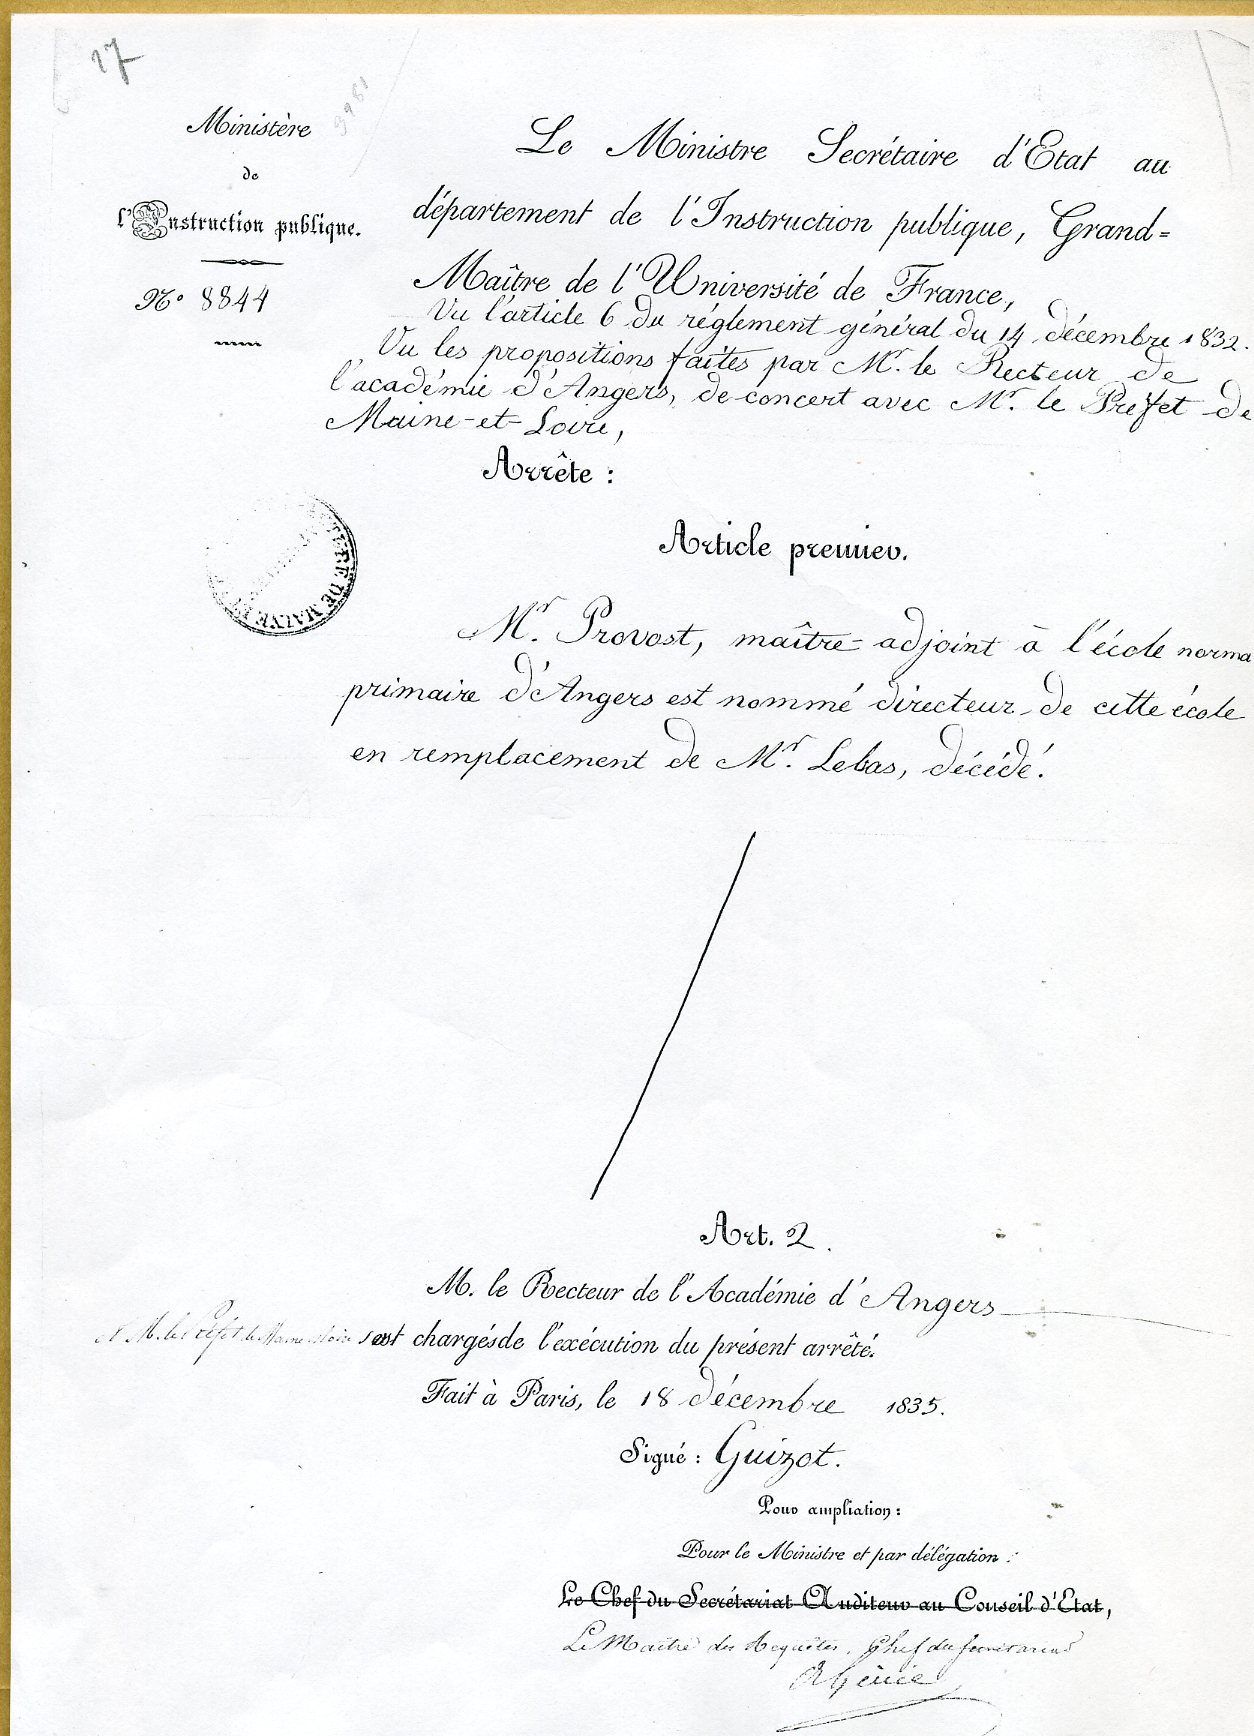 17
Ministère
de
l'Instruction publique.
N° 8844
Le Ministre Secrétaire d'Etat au
département de l'Instruction publique, Grand-
Maître de l'Université de France,
Vu l'article 6 du réglement général du 14 décembre 1832.
Vu les propositions faites par Mr. le Recteur de
l'académie d'Angers, de concert avec Mr. le Prefet de
Maine-et-Loire,
Arrête :
Article premier.
Mr. Provost, maître-adjoint à l'école norma
primaire d'Angers est nommé directeur de cette école
en remplacement de Mr. Lebas, décédé.
Art. 2.
M. le Recteur de l'Académie d'Angers
et M. le Préfet de Maine et Loire sont chargés de l'exécution du présent arrêté.
Fait à Paris, le 18 décembre 1835.
Signé : Guizot.
Pour ampliation :
Pour le Ministre et par délégation :
Le Chef du Secrétariat Auditeur au Conseil d'Etat,
Le Maître des Requêtes, Chef du Secrétariat